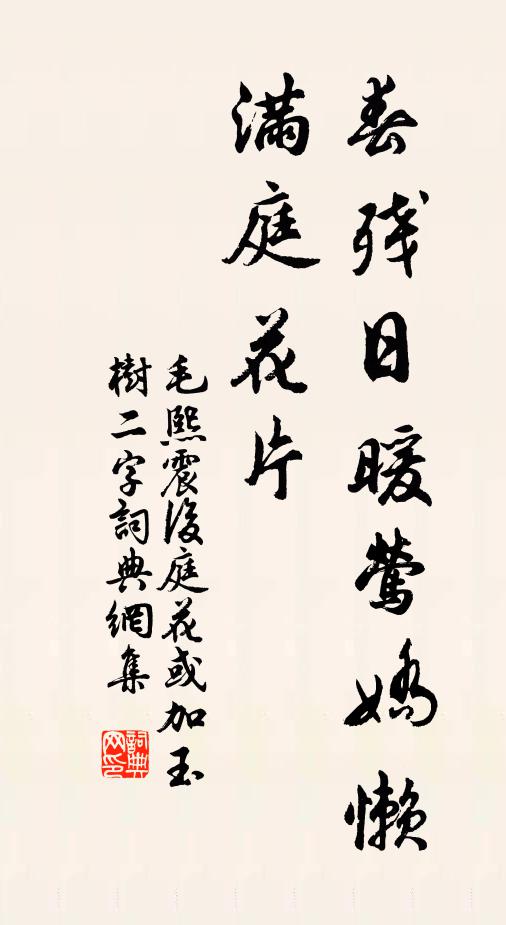 春残日暖莺嬌懶
滿庭花片
毛熙震後庭花或加玉
樹二字詞典網集
詞典网印